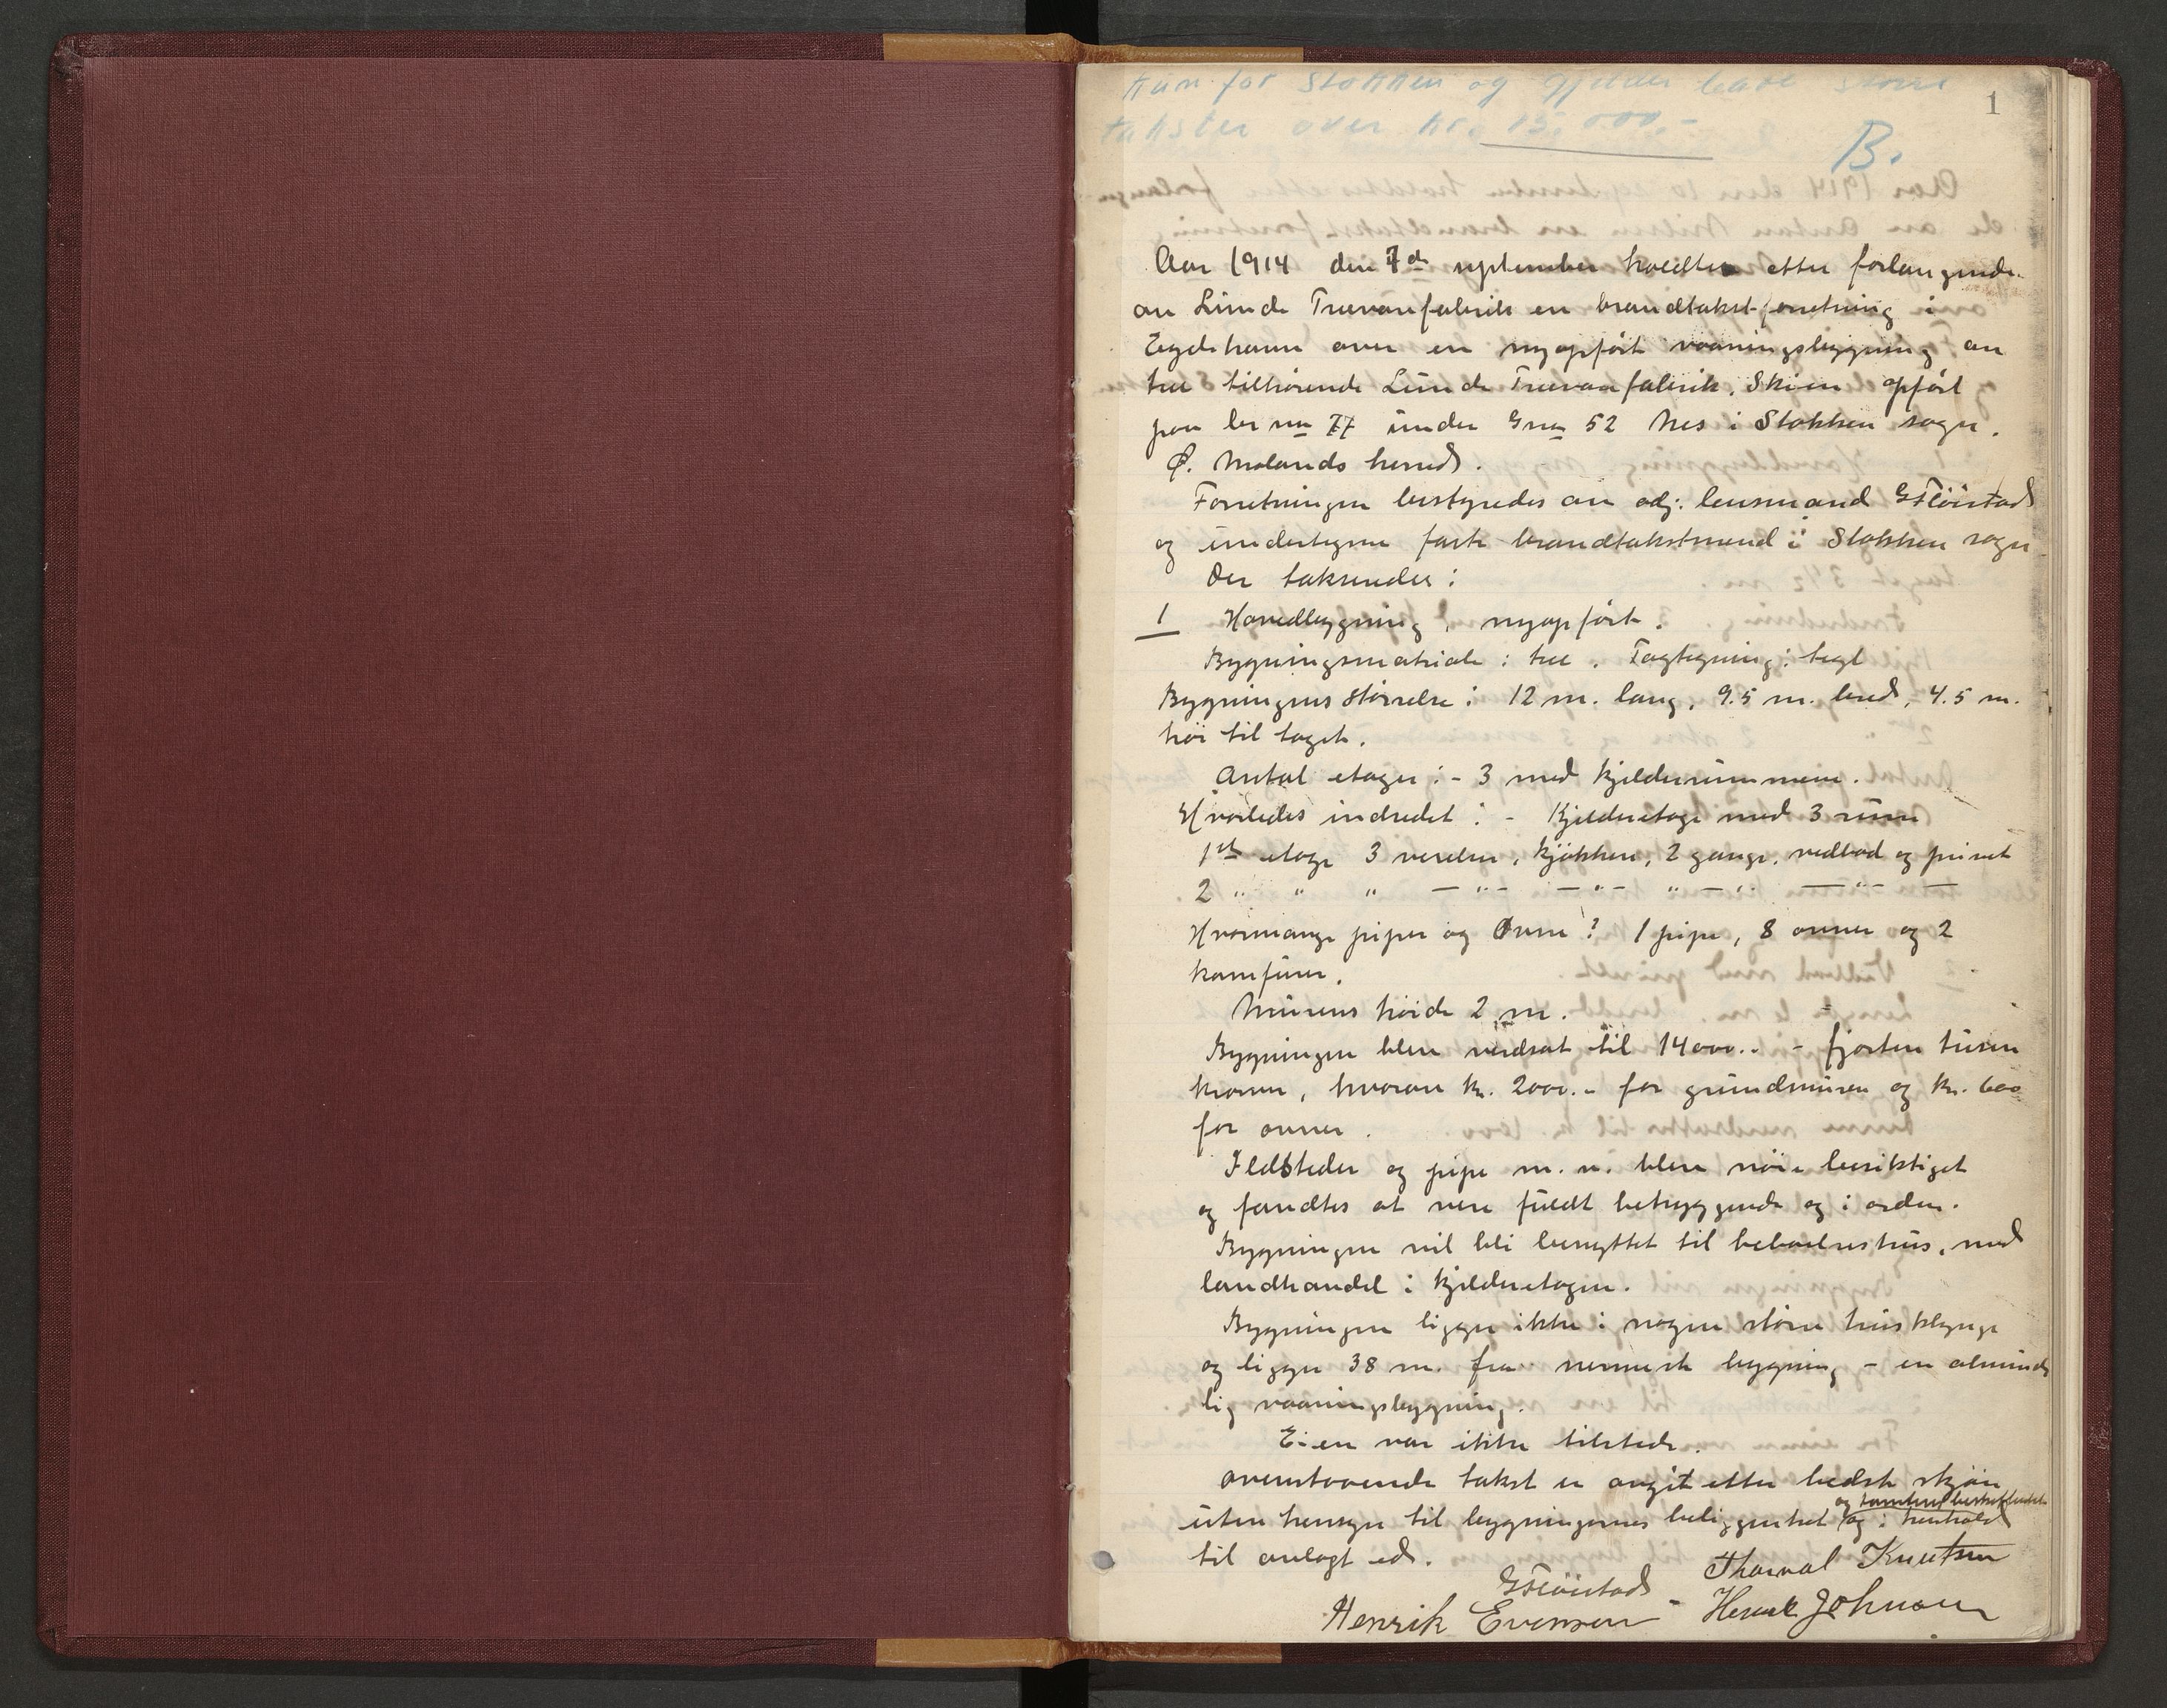 Kun for Stokken og gjelder bare større
takster over kr. 15.000,-
1
B.
Aar 1914 den 7de september holdtes etter forlangende
av Lunde Trævarefabrik en brandtakst-forretning i
Eydehavn over en nyopført vaaningsbygning av
træ tilhørende Lunde Trævarefabrik, Skien opført
paa br no 77 under Gno 52 Nes i Stokken sogn.
Ø. Molands herred.
Forretningen bestyredes av adj: lensmand G Fløistad
og undertegne faste brandtakstmend i Stokken sogn
Der takseredes:
1 Hovedbygning, nyopført.
Bygningsmatriale: træ. Tagtegning: tegl
Bygningens Størrelse: 12 m. lang, 9.5 m. bred, 4.5 m.
høi til taget.
Antal etager: - 3 med kjelderummene.
Hvorledes indredet: - Kjelderetage med 3 rum
1ste etage 3 verelser, kjøkken, 2 gange, vedbod og privet
2 " " " — " — — " — " — " — " —
Hvormange piper og Ovne? 1 pipe, 8 ovner og 2
komfurer.
Murens høide 2 m.
Bygningen blev verdsat til 14000.- - fjorten tusen
kroner, hvorav kr. 2000.- for grundmuren og kr. 600
for ovner.
Ildsteder og pipe m. v. blev nøie besiktiget
og fandtes at være fuldt betryggende og i orden.
Bygningen vil bli benyttet til beboelseshus, med
landhandel i kjelderetagen.
Bygningen ligger ikke i nogen større husklynge
og ligger 38 m. fra nermeste bygning - en almindelig
lig vaaningsbygning.
Eieren var ikke tilstede.
Ovenstaaende takst er avgit etter bedste skjøn
og
uten hensyn til bygningernes beliggenhet og i henhold
til avlagt ed.
G Fløistad - Thorval Knutsen
Henrik Evensen Johnsen